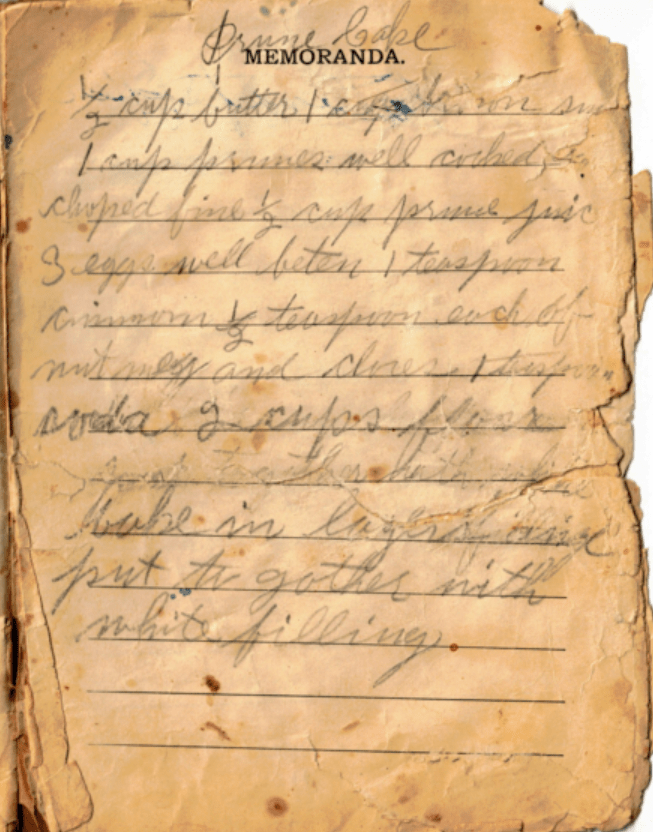 Prune Cake
MEMORANDA.
½ cup butter 1 cup brown
1 cup prunes well cocked,
choped fine ½ cup prune juic
3 eggs well beten 1 teaspoon
cinnmom ½ teaspoon each of
nutmegg and cloves. 1 teaspoon
soda 2 cups flour
bake in layers
put to gother with
white filling.